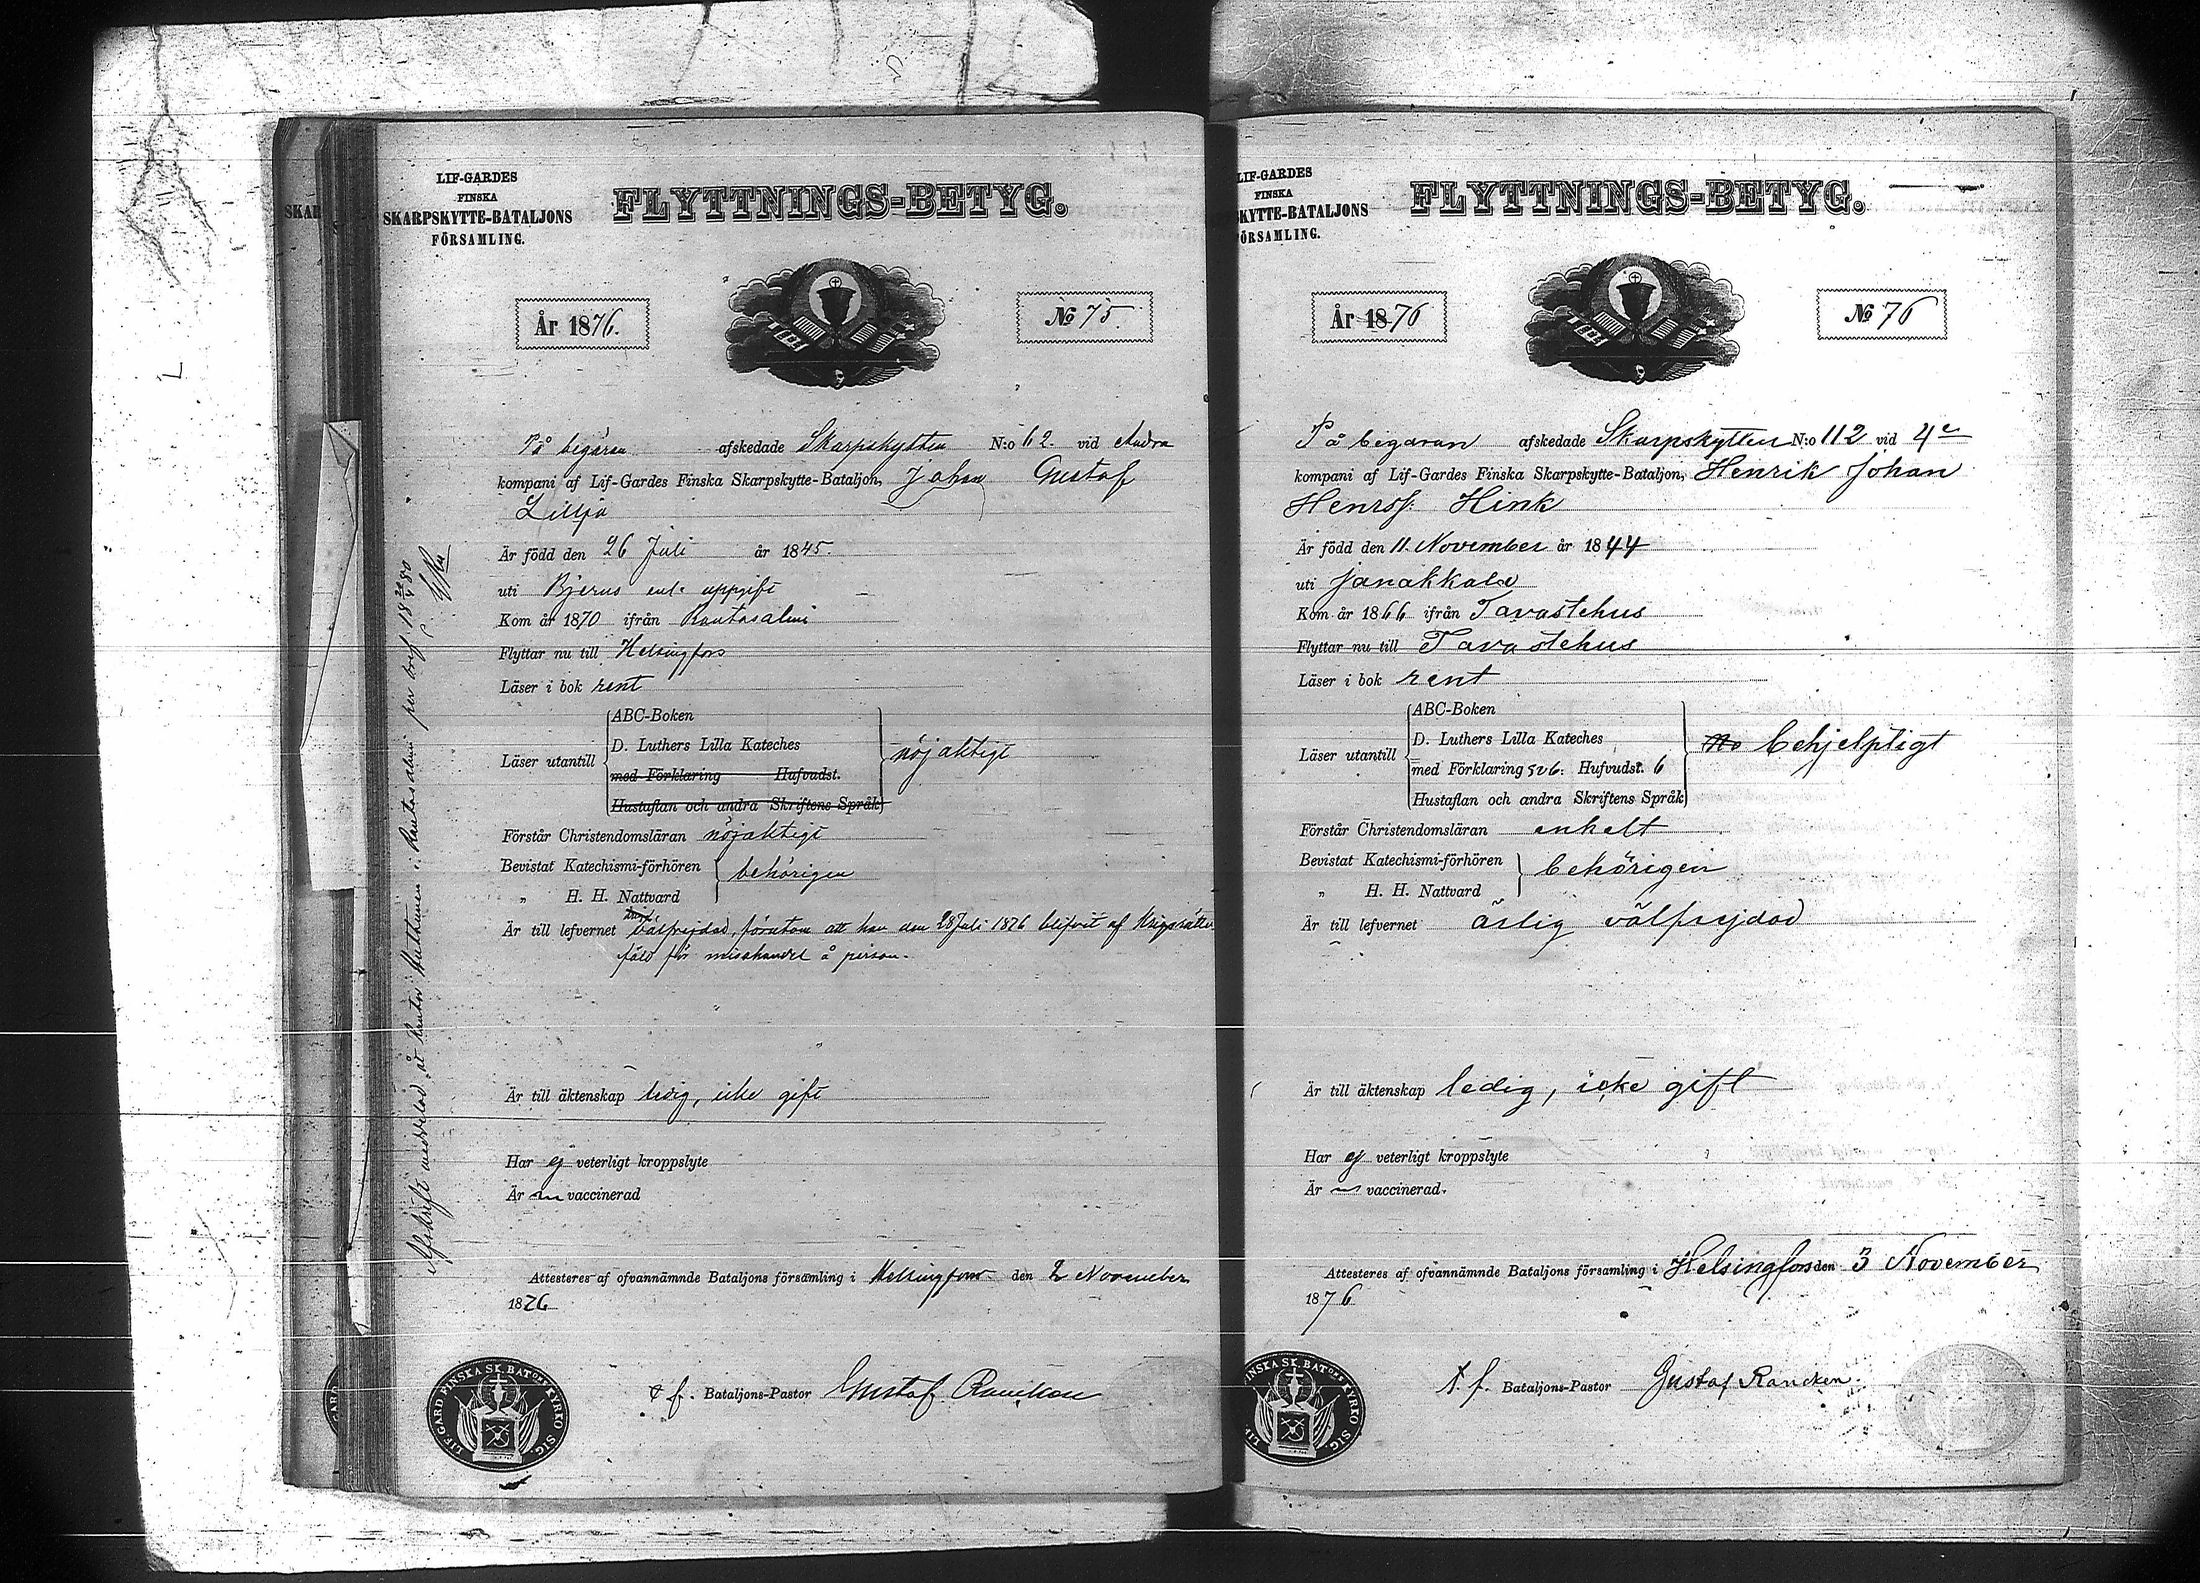 SKAR
LIF-GARDES
FINSKA
SKARPSKYTTE-BATALJONS
FÖRSAMLING.
FLYTTNINGS-BETYG.
År 1876.
No 75.
På begäran afskedade Skarpskytten N:o 62. vid Andra
kompani af Lif-Gardes Finska Skarpskytte-Bataljon, Johan Gustaf
Lillja
Är född den 26 Juli år 1845.
uti Bjerus enl. uppgift
Kom år 1870 ifrån Rantasalmi
Flyttar nu till Helsingfors
Läser i bok rent
ABC-Boken
D. Luthers Lilla Kateches
Läser utantill nöjaktigt
med Förklaring Hufvudst.
Hustaflan och andra Skriftens Språk
Förstår Christendomsläran nöjaktigt
Bevistat Katechismi-förhören
behörigen
" H. H. Nattvard
Är till lefvernet välfrejdad, förutom att han den 28 Juli 1876 blifvit af Krigsrätten
fäld för misshandel å person.
Är till äktenskap ledig, icke gift
Har ej veterligt kroppslyte
Är vaccinerad
Attesteres af ofvannämnde Bataljons församling i Helsingfors den 2 November
1876
t f. Bataljons-Pastor Gustaf Rancken
LIF. GARD. FINSKA SK. BATONS KYRKO SIG.
Afskrift meddelad åt Kantor Hulthinen i Rantasalmi per bref 18 80
LIF-GARDES
FINSKA
KYTTE-BATALJONS
ÖRSAMLING.
FLYTTNINGS-BETYG.
År 1876
No 76
På begäran afskedade Skarpskytten N:o 112 vid 4e
kompani af Lif-Gardes Finska Skarpskytte-Bataljon, Henrik Johan
Henrsf: Hink
Är född den 11. November år 1844
uti Janakkala
Kom år 1866 ifrån Tavastehus
Flyttar nu till Tavastehus
Läser i bok rent
ABC-Boken
D. Luthers Lilla Kateches
Läser utantill behjelpligt
med Förklaring 5 o 6: Hufvudst. 6
Hustaflan och andra Skriftens Språk
Förstår Christendomsläran enkelt
Bevistat Katechismi-förhören
behörigen
" H. H. Nattvard
Är till lefvernet ärlig välfrejdad
Är till äktenskap ledig, icke gift
Har ej veterligt kroppslyte
Är vaccinerad.
Attesteres af ofvannämnde Bataljons församling i Helsingfors den 3 November
1876
t. f. Bataljons-Pastor Gustaf Rancken.
LIF. INSKA SK. BATONS KYRKO SIG.